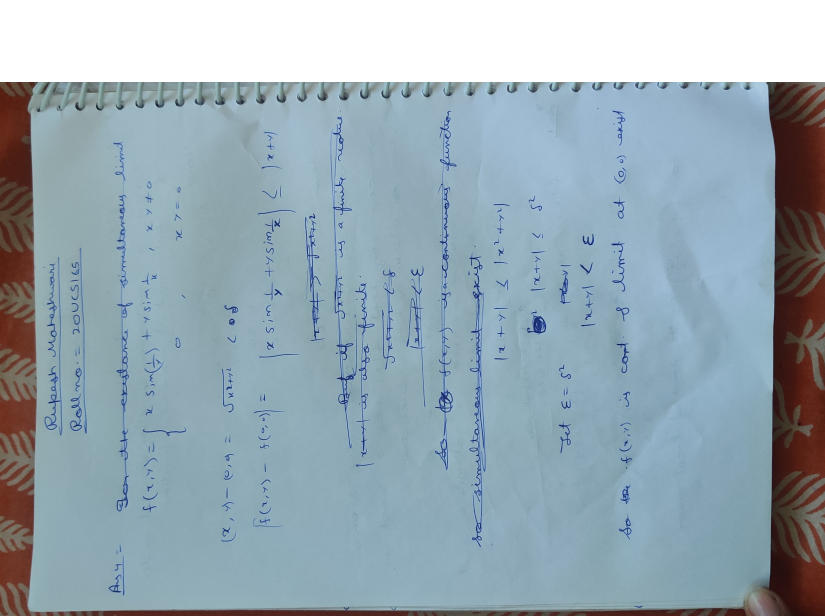 Rupesh Maheshwari
Roll no. = 20UCS165
Ans 4 = the existance of simultaneous limit
f(x,y) = { x sin(1/y) + y sin 1/x , xy ≠ 0
0 , xy = 0
(x,y) - (0,0) = √x²+y² < δ
|f(x,y) - f(0,0)| = | x sin 1/y + y sin 1/x | ≤ |x+y|
if √x²+y² is a finite value
|x+y| is also finite.
√x²+y² < δ
|x+y| < ε
So f(x,y) is continuous function
so simultaneous limit exist.
|x+y| ≤ |x²+y²|
|x+y| ≤ δ²
Let ε = δ²
|x+y| < ε
So f(x,y) is cont & limit at (0,0) exist